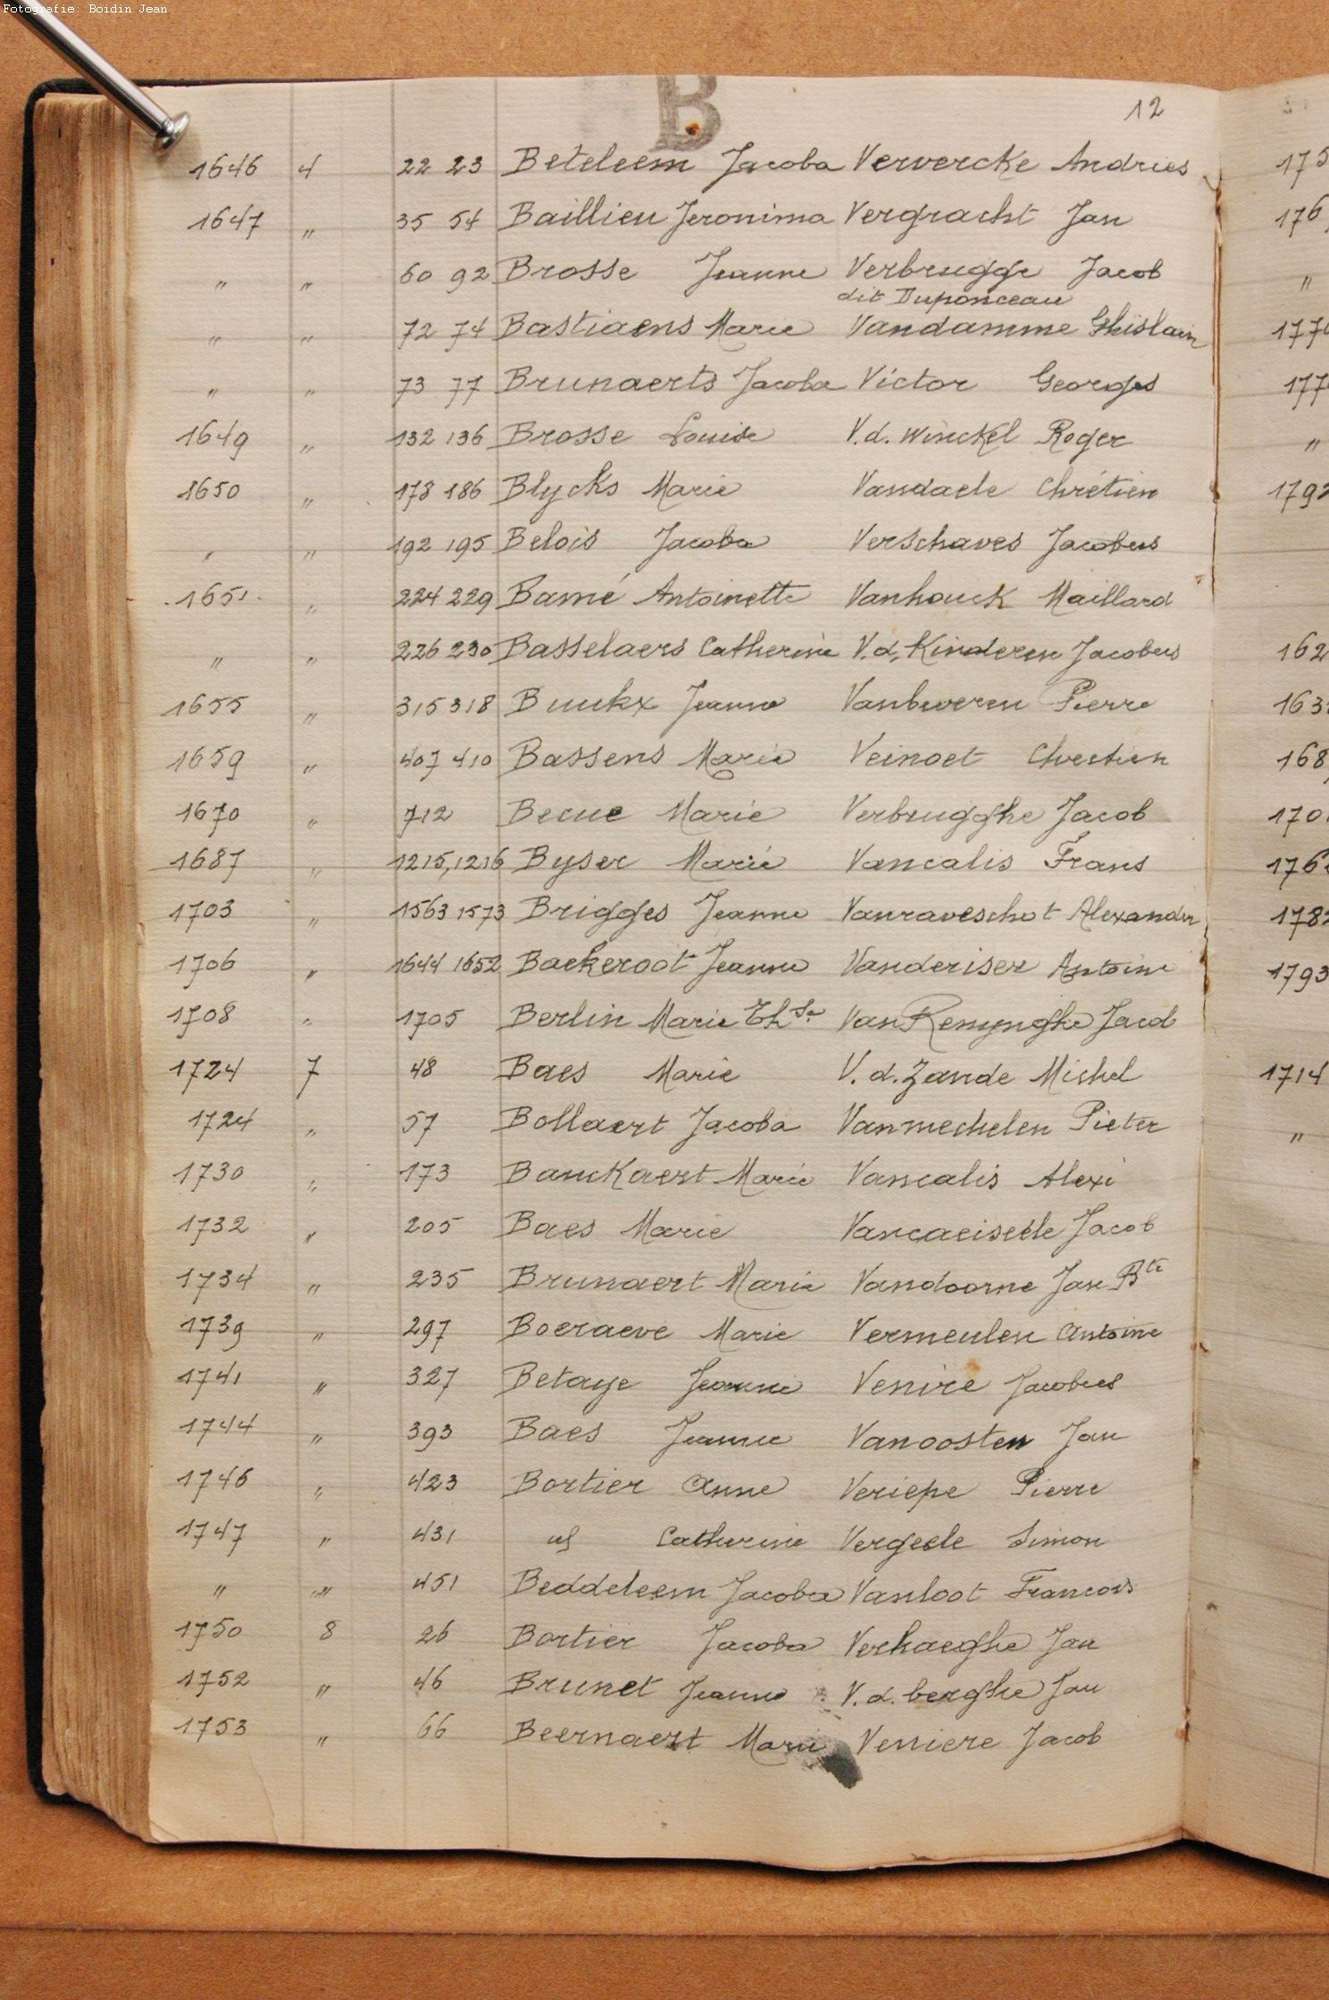 Fotografie: Boidin Jean
B
12
1646 4 22 23 Beteleem Jacoba Ververcke Andries
1647 " 35 54 Baillieu Jeronima Vergracht Jan
" " 60 92 Brosse Jeanne Verbrugge Jacob
dit Duponceau
" " 72 74 Bastiaens Marie Vandamme Ghislain
" " 73 77 Brunaerts Jacoba Victor Georges
1649 " 132 136 Brosse Louise V.d. Winckel Roger
1650 " 178 186 Blycks Marie Vandaele Chrétien
" " 192 195 Belois Jacoba Verschaves Jacobus
1651 " 224 229 Bamé Antoinette Vanhouck Maillard
" " 226 230 Basselaers Catherine V.d. Kinderen Jacobus
1655 " 315 318 Jeanne Pierre
1659 " 407 410 Bassens Marie Veinoet Chrestien
1670 " 712 Becue Marie Verbrugghe Jacob
1687 " 1215,1216 Byser Marie Vancalis Frans
1703 " 1563 1573 Brigges Jeanne Vanraveschot Alexander
1706 " 1644 1652 Baekeroot Jeanne Vanderiser Antoine
1708 " 1705 Berlin Marie Th.se Van Renynghe Jacob
1724 7 48 Baes Marie V.d. Zande Michel
1724 " 57 Bollaert Jacoba Vanmechelen Pieter
1730 " 173 Banckaert Marie Vancalis Alexi
1732 " 205 Baes Marie Vancaeiseele Jacob
1734 " 235 Brunaert Marie Vandoorne Jan Bte
1739 " 297 Boeraeve Marie Vermeulen Antoine
1741 " 327 Betaye Jeanne Venire Jacobus
1744 " 393 Baes Jeanne Vanoosten Jan
1746 " 423 Bortier Anne Veriepe Pierre
1747 " 431 Catherine Vergeele Simon
" " 451 Beddeleem Jacoba Vanloot Francois
1750 8 26 Bortier Jacoba Verhaeghe Jan
1752 " 46 Brunet Jeanne V.d. berghe Jan
1753 " 66 Beernaert Marie Veniere Jacob
175
176
"
177
177
"
1792
162
163
168
170
176
178
1793
1714
"